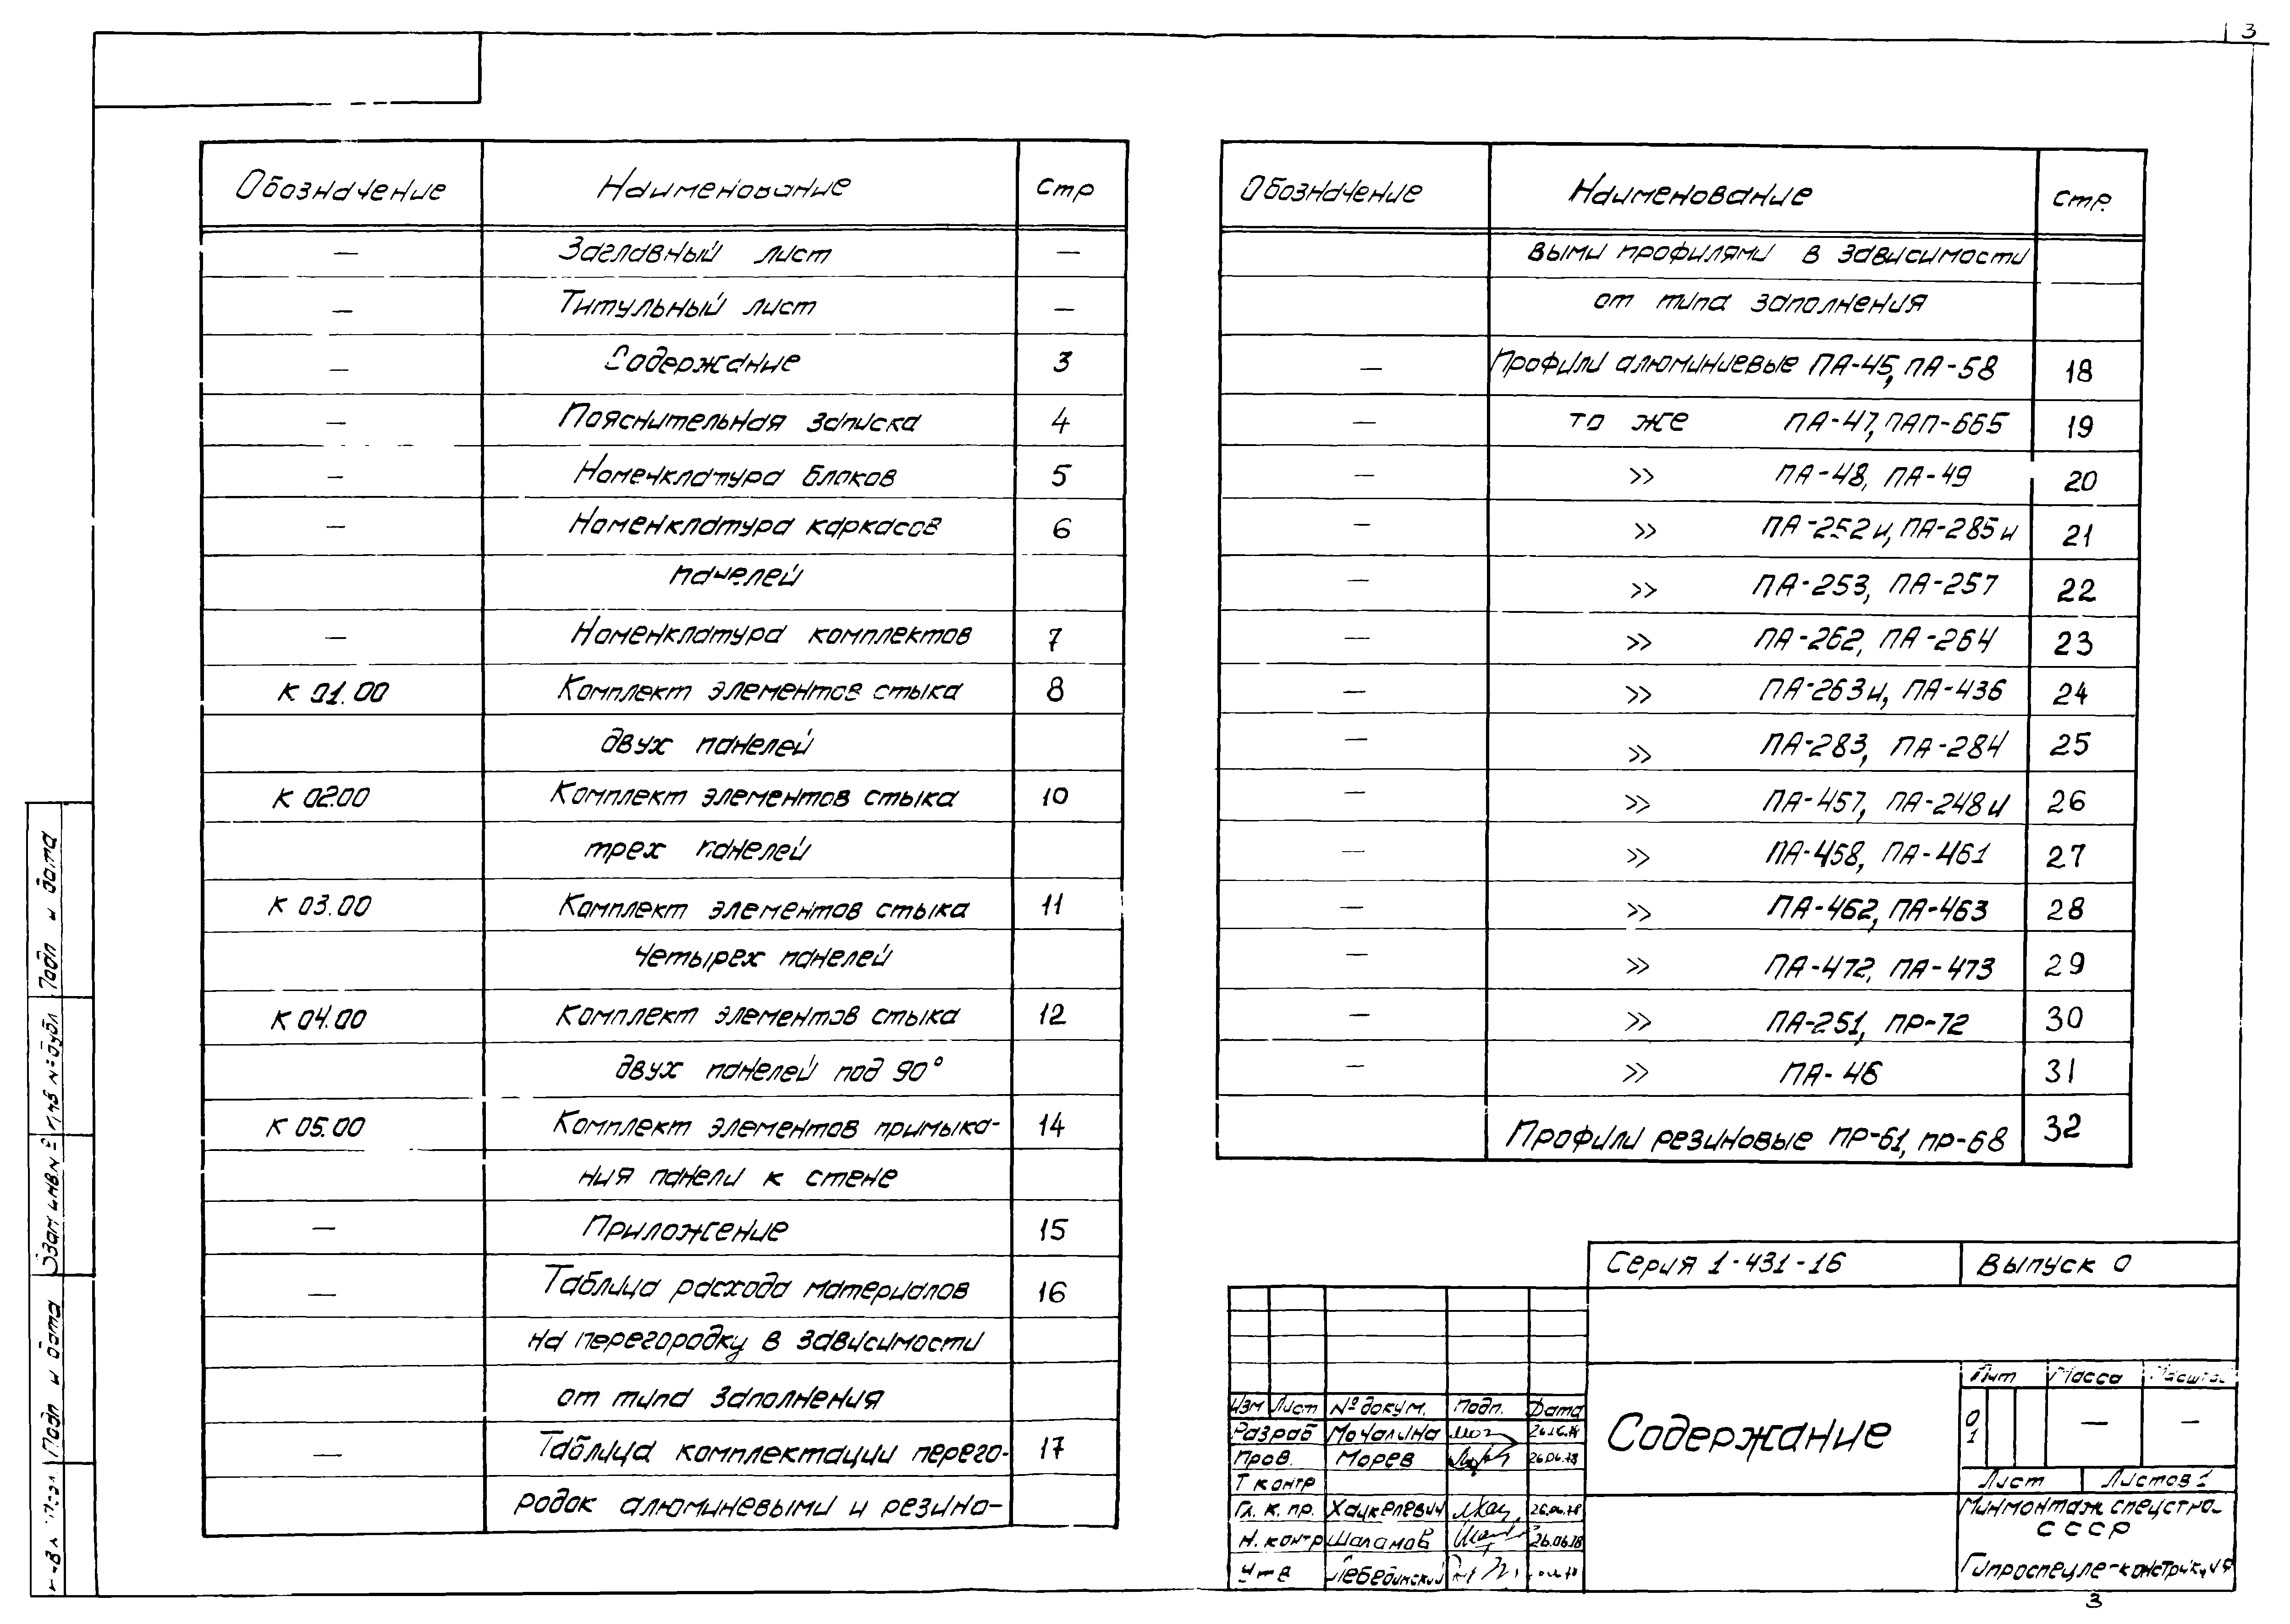 3
Обозначение Наименование Стр
— Заглавный лист —
— Титульный лист —
— Содержание 3
— Пояснительная записка 4
— Номенклатура блоков 5
— Номенклатура каркасов 6
панелей
— Номенклатура комплектов 7
К 01.00 Комплект элементов стыка 8
двух панелей
К 02.00 Комплект элементов стыка 10
трех панелей
К 03.00 Комплект элементов стыка 11
четырех панелей
К 04.00 Комплект элементов стыка 12
двух панелей под 90°
К 05.00 Комплект элементов примыка- 14
ния панели к стене
— Приложение 15
— Таблица расхода материалов 16
на перегородку в зависимости
от типа заполнения
— Таблица комплектации перего- 17
родок алюминевыми и резино-
Обозначение Наименование стр.
выми профилями в зависимости
от типа заполнения
— Профили алюминиевые ПА-45, ПА-58 18
— то же ПА-47, ПАП-665 19
— >> ПА-48, ПА-49 20
— >> ПА-252и, ПА-285и 21
— >> ПА-253, ПА-257 22
— >> ПА-262, ПА-264 23
— >> ПА-263и, ПА-436 24
— >> ПА-283, ПА-284 25
— >> ПА-457, ПА-248и 26
— >> ПА-458, ПА-461 27
— >> ПА-462, ПА-463 28
— >> ПА-472, ПА-473 29
— >> ПА-251, ПР-72 30
— >> ПА-46 31
Профили резиновые ПР-61, ПР-68 32
Серия 1-431-16 Выпуск 0
Изм Лист № докум. Подп. Дата
Разраб Мочалина
Пров. Морев 26.06.78
Т контр
Гл. к. пр. Хацкелевич 26.06.78
Н. контр Шаламов 26.06.78
Утв Лебединский
Содержание
Лит Масса Масштаб
0 1 — —
Лист Листов 1
Минмонтажспецстрой
СССР
Гипроспецлегконструкция
3
Подп и дата
Инв № дубл
Взам инв. №
Подп и дата